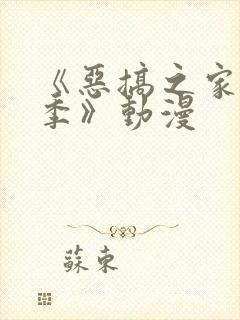 《惡搞之家
季》動漫
蘇東